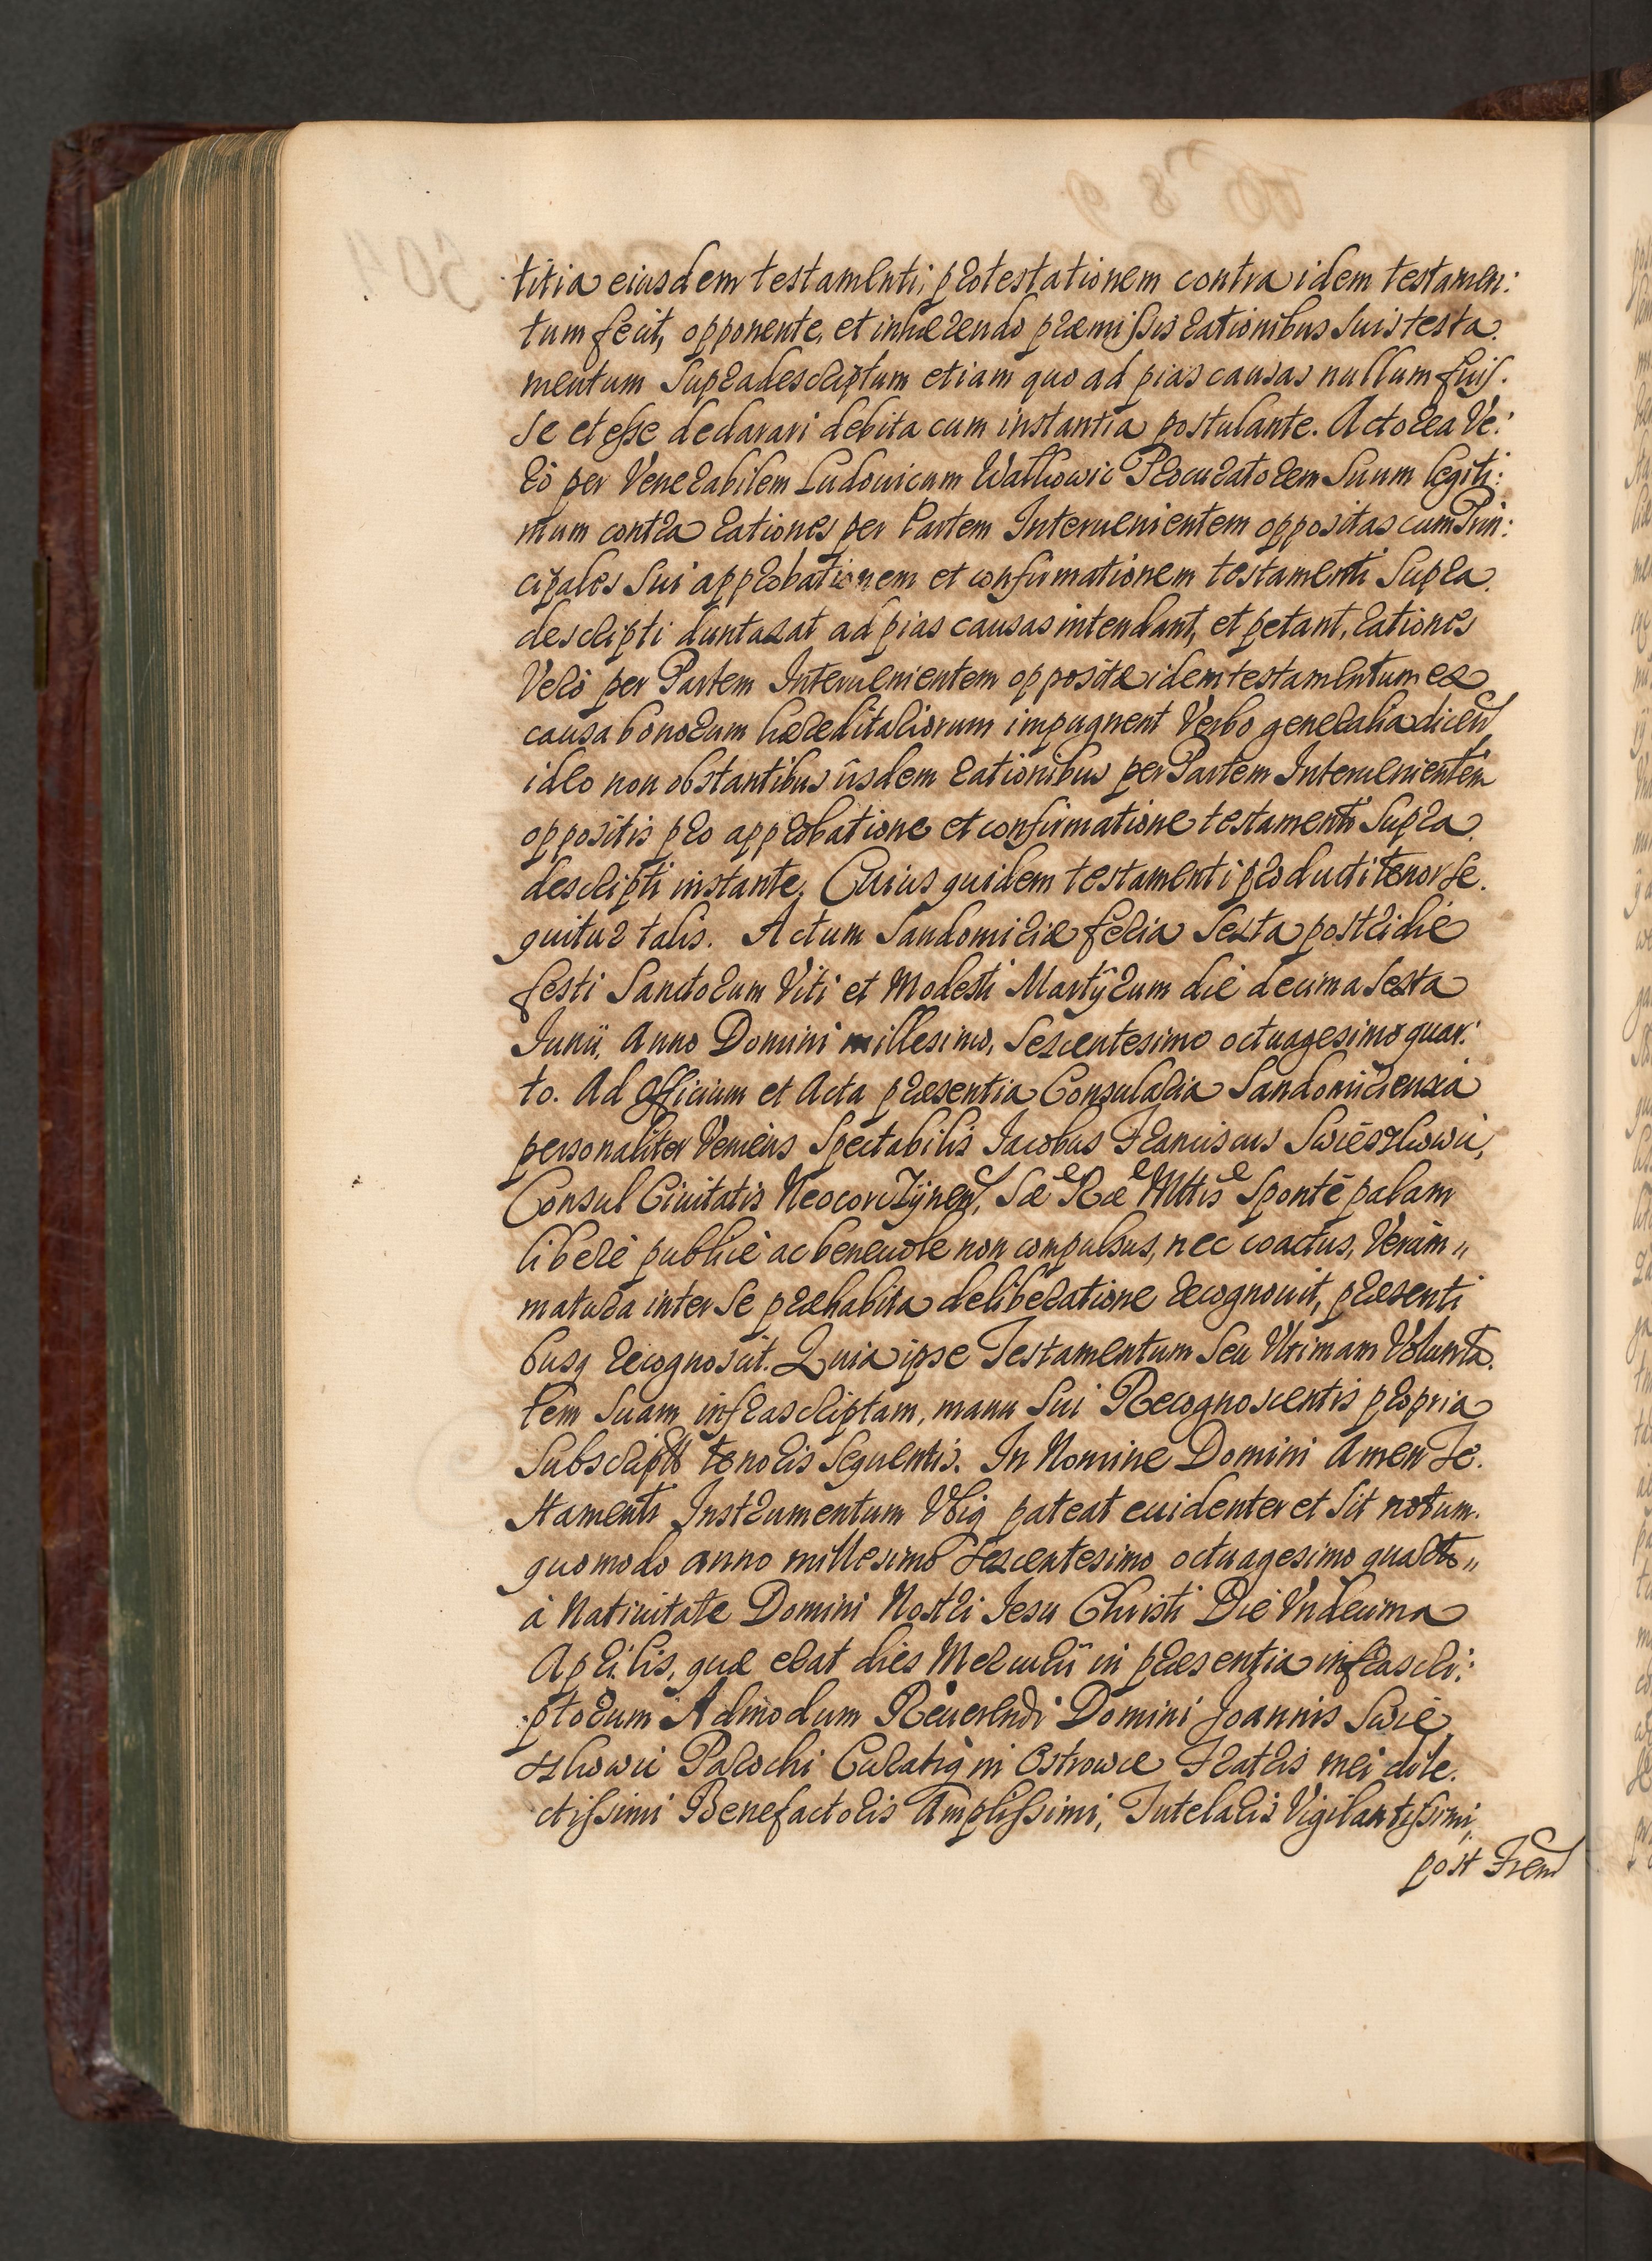 titia eiusdem testamenti, protestationem contra idem testamen:
tum fecit, opponente, et inhærendo præmissis rationibus suis testa.
mentum Supradescriptum etiam quo ad pias causas nullum fuis.
se et esse declarari debita cum instantia postulante. Actorea Ve:
rò per Venerabilem Ludouicum Watkowic Procuratorem Suum legiti:
mum contra rationes per Partem Interuenientem oppositas cum Prin:
cipales Sui approbationem et confirmationem testamenti Supra.
descripti duntaxat ad pias causas intendant, et petant, rationes
Verò per Partem Interuenientem oppositæ idem testamentum ex
causa bonorum hæreditariorum impugnent Verbo generalia dicen
ideo non obstantibus iisdem rationibus per Partem Interuenientem
oppositis pro approbatione et confirmatione testamenti Supra.
descripti instante. Cuius quidem testamenti producti tenor se.
quitur talis. Actum Sandomiriæ feria Sexta postridie
festi Sanctorum Viti et Modesti Martÿrum die decima sexta
Junii, Anno Domini millesimo, Sexcentesimo octuagesimo quar:
to. Ad Officium et Acta præsentia Consularia Sandomiriensia
personaliter Veniens Spectabilis Jacobus Franciscus Swieszkowic,
Consul Ciuitatis Neocorczÿnen, Sæ Ræ Mttis Spontè palam
liberè publicè ac beneuole non compulsus, nec coactus, Verùm„
matura inter Se præhabita deliberatione recognouit, præsenti
busq recognoscit. Quia ipse Testamentum Seu Vltimam Volunta.
tem Suam infrascriptam, manu Sui Recognoscentis propria
Subscripsit tenoris Sequentis. In Nomine Domini Amen Te.
stamenti Instrumentum Vbiq pateat euidenter et Sit notum.
quomodo anno millesimo Sexcentesimo octuagesimo quarto„
à Natiuitate Domini Nostri Jesu Christi Die Vndecima
Aprilis, quæ erat dies Mercurii in præsentia infrascri:
ptorum Admodum Reuerendi Domini Joannis Swie
szkowic Parochi Curatiq in Ostrowce Fratris mei dile.
ctissimi Benefactoris Amplissimi, Tutelaris Vigilantissimi,
post